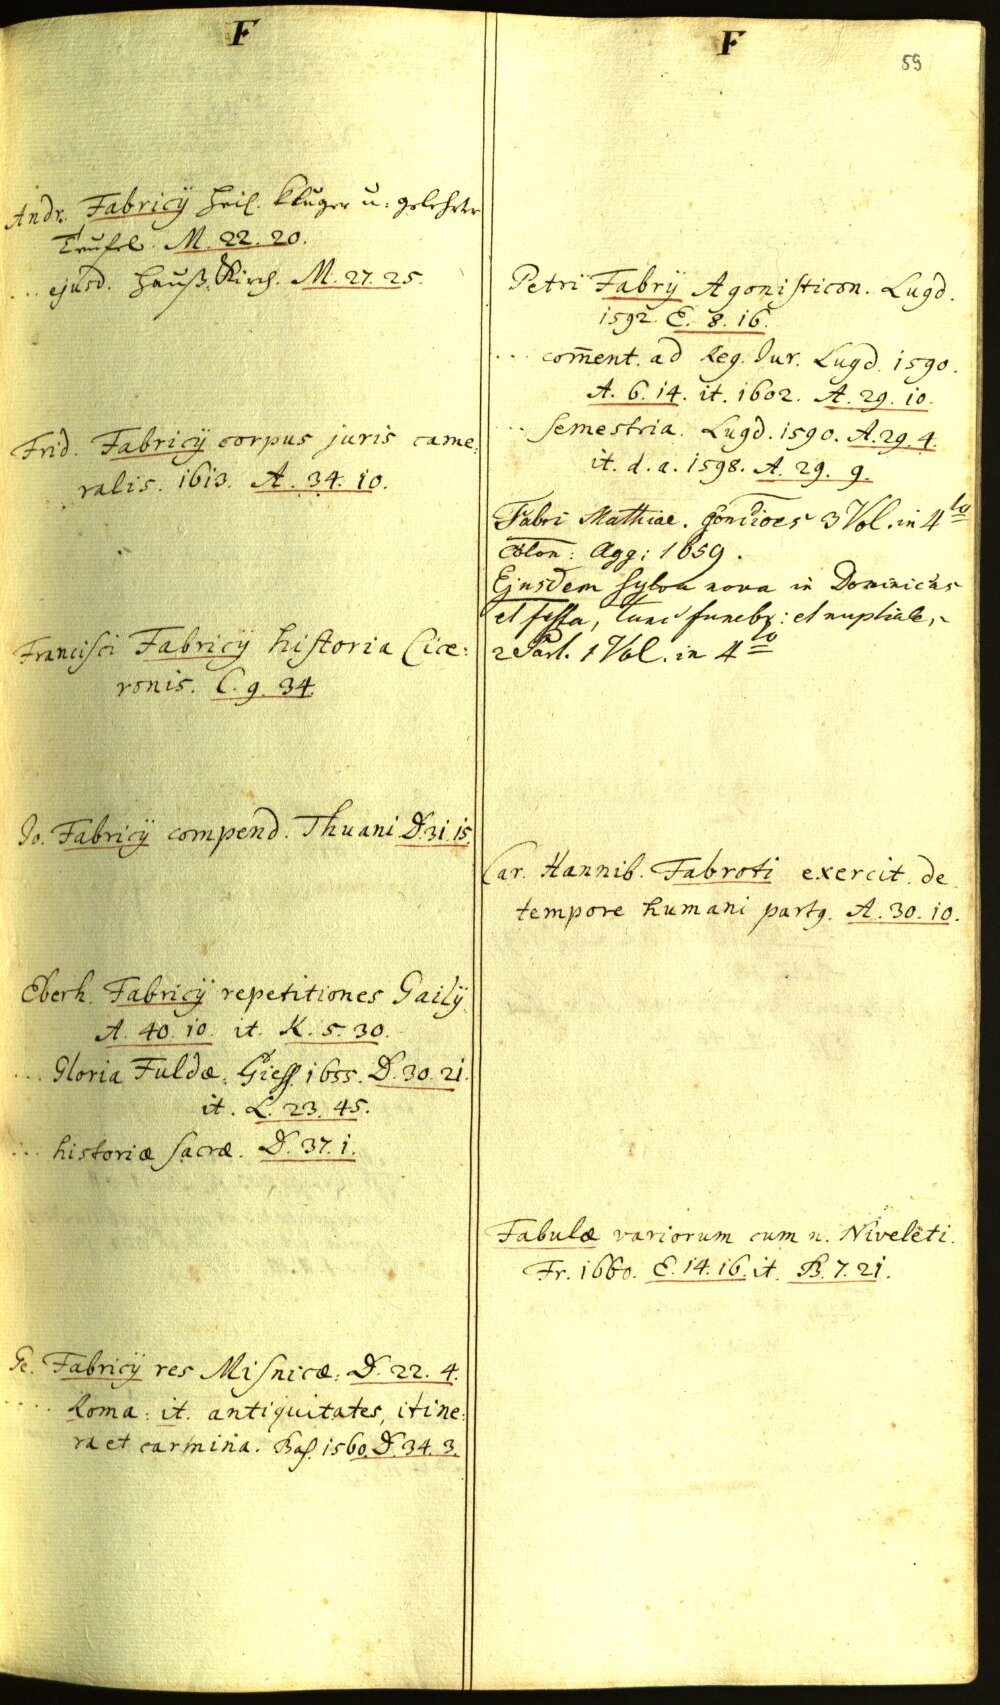 F
Andr. Fabricÿ heil. kluger u. gelehrter
Teufel. M. 22. 20.
... ejusd. Hauß-Kirch. M. 27. 25.
Frid. Fabricÿ corpus juris came:
ralis. 1613. A. 34. 10.
Francisci Fabricÿ historia Cice:
ronis. C. 9. 34.
Jo. Fabricÿ compend. Thuani D. 31. 15.
Eberh. Fabricÿ repetitiones Gailÿ.
A. 40. 10. it. K. 5. 30.
... Gloria Fuldæ. Gieß. 1655. D. 30. 21.
it. L. 23. 45.
... historiæ sacræ. D. 37. 1.
Ge. Fabricÿ res Misnicæ. D. 22. 4.
.... Roma: it. antiquitates, itine:
ra et carmina. Bas. 1560. D. 34. 3.
F
59
Petri Fabrÿ Agonisticon. Lugd.
1592. E. 8. 16.
.... com̄ent. ad Reg. Jur. Lugd. 1590.
A. 6. 14. it. 1602. A. 29. 10.
... semestria. Lugd. 1590. A. 29. 4.
it. d. a. 1598. A. 29. 9.
Fabri Mathiæ. Concioes 3 Vol. in 4to
Colon: Agg: 1659.
Ejusdem Sylva nova in Dominicas
et festa, tum funebr: et nuptiales,
2 Part. 1 Vol. in 4to
Car. Hannib. Fabroti exercit. de
tempore humani part9. A. 30. 10.
Fabulæ variorum cum n. Niveleti.
Fr. 1660. E. 14. 16. it. B. 7. 21.